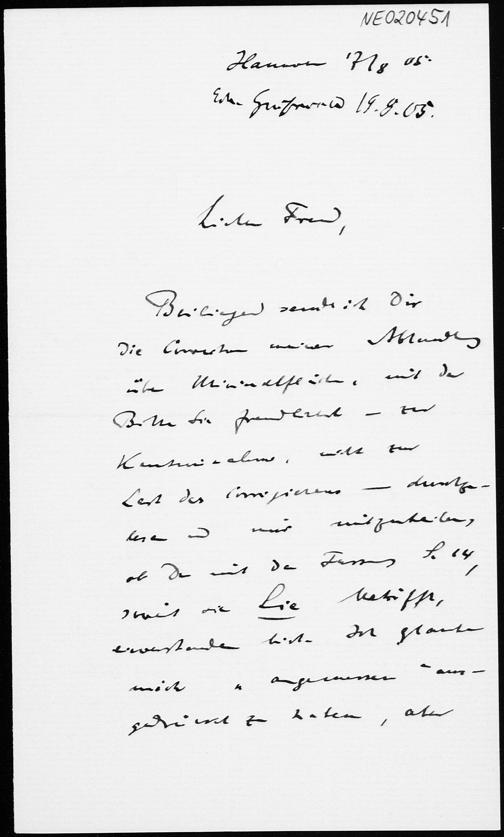 NE020451
Hannover 17/8 05.
Erh. Greifswald 19.8.05.
Lieber Freund,
Beiliegend sende ich Dir
die Correctur meiner Abhandlg
über Minimalflächen, mit der
Bitte sie freundlichst — zur
Kenntnisnahme, nicht zur
Last des Corrigierens — durchzu-
lesen und mir mitzuteilen,
ob Du mit der Fassung S. 14,
soweit sie Lie betrifft,
einverstanden bist. Ich glaube
mich "angemessen" aus-
gedrückt zu haben, aber